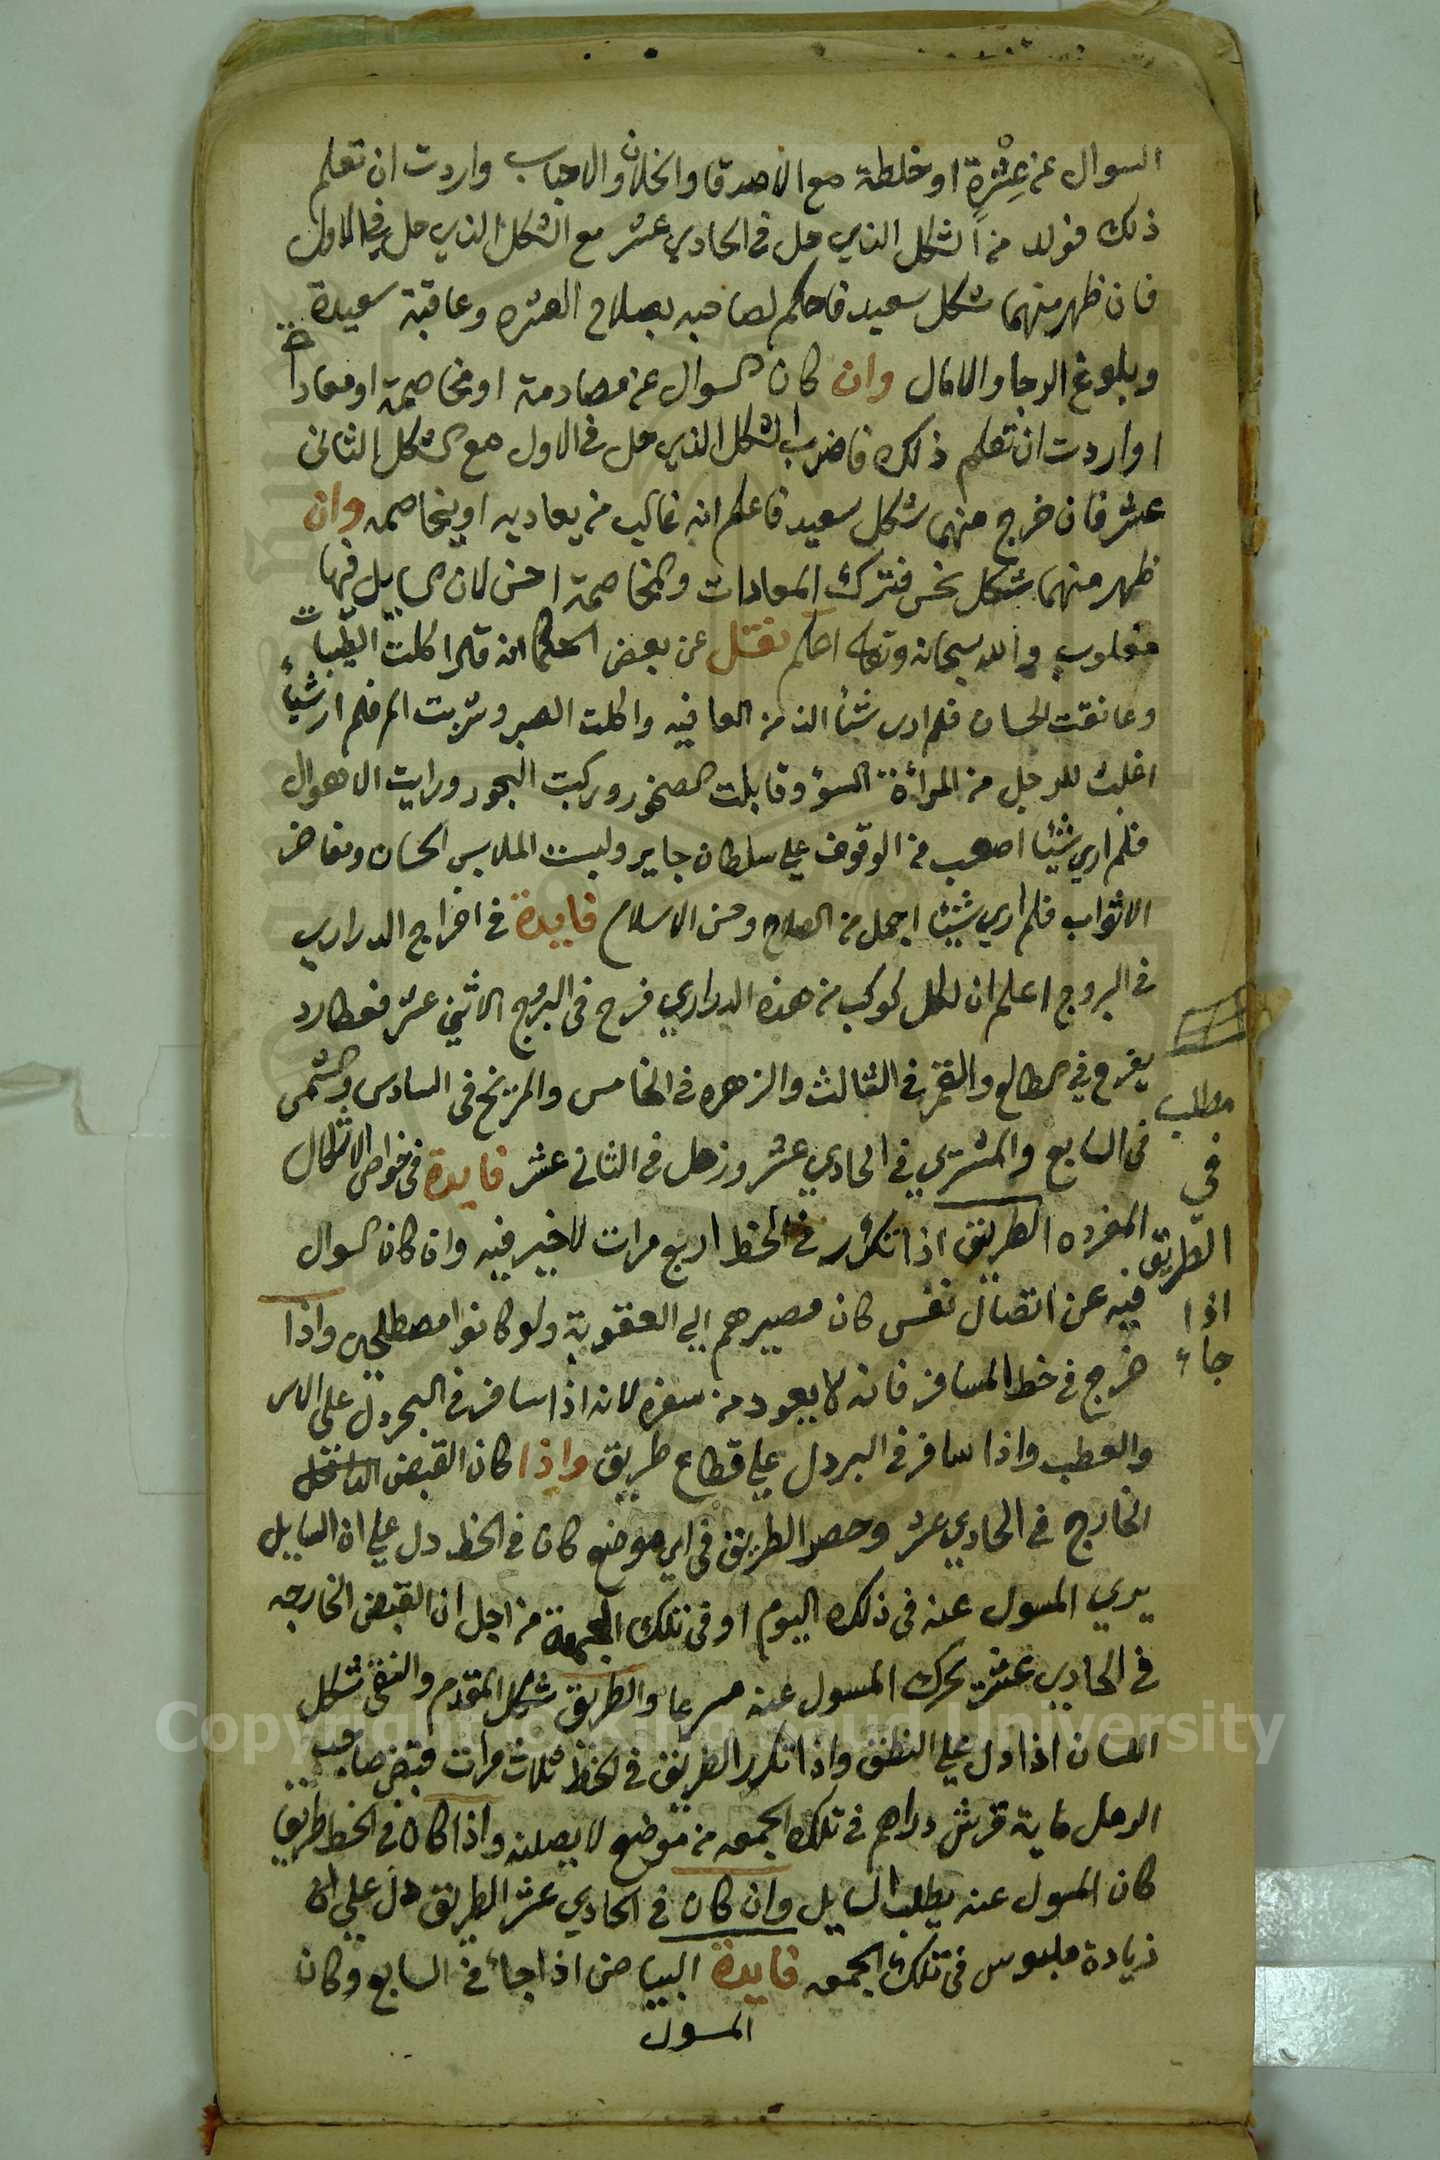 السوال عن عِشْرِةِ او خلطة مع الاصدقا والخلان والاحباب واردت ان تعلم
ذلك فولد من الشكل الذي حل في الحادي عشر مع الشكل الذي حل في الاول
فان ظهر منهما شكل سعيد فاحكم لصاحبه بصلاح العشره وعاقبة سعيدة
وبلوغ الرجا والامال وان كان السوال عن مصادمة او مخاصمة او معاداة
او اردت ان تعلم ذلك فاضرب الشكل الذي حل في الاول مع الشكل الثاني
عشر فان خرج منهما شكل سعيد فاعلم انه غالب من يعاديه او يخاصمه وان
ظهر منهما شكل نحس فترك المعادات والمخاصمة احسن لان السايل فيها
مغلوب والله سبحانه وتعالى احكم نقل عن بعض الحكما انه قال اكلت الطيبات
وعانقت الحسان فلم ارى شئا الذ من العافيه واكلت الصبر وشربت المر فلم ار شيأ
اغلب للرجل من المرأة السوؤ وقابلت الصخور وركبت البحور ورايت الاهوال
فلم اري شيئا اصعب من الوقوف علي سلطان جاير ولبست الملابس الحسان ومفاخر
الاثواب فلم اري شيئا اجمل من الصلاح وحسن الاسلام فايدة في اخراج الدراري
في البروج اعلم ان لكل كوكب من هذه الدراري فرح في البروج الاثني عشر فعطارد
يفرح في الطالع والقمر في الثالث والزهره في الخامس والمريخ في السادس والشمس
في السابع والمشتري في الحادي عشر وزحل في الثاني عشر فايدة في خواص الاشكال
المفرده الطريق اذا تكرر في الخط اربع مرات لا خير فيه وان كان السوال
فيه عن اتصال نفس كان مصيرهم الي العقوبة ولو كانوا مصطلحين واذا
خرج في خط المسافر فانه لا يعود من سفره لانه اذا سافر في البحر دل على الاسر
والعطب واذا سافر في البر دل علي قطاع طريق واذا كان القبض الداخل
الخارج في الحادي عشر وحصر الطريق في اي موضع كان في الخط دل علي ان السايل
يري المسول عنه في ذلك اليوم او في تلك الجمعة من اجل ان القبض الخارجه
في الحادي عشر تحرك المسول عنه مسرعا والطريق شكل المقدم والنقي شكل
اللسان اذا دل علي النطق واذا تكرر الطريق في الخط ثلاث مرات قبض صاحب
الرمل ماية قرش دراهم في تلك الجمعه من موضع لا يصله واذا كان في الخط طريق
كان المسول عنه يطلب السايل وان كان في الحادي عشر الطريق دل علي ان
زيادة ملبوس في تلك الجمعه فايدة البياض اذا جاء في السابع وكان
المسول
مطلب
في
الطريق
اذا
جاء
Copyright to King Saud University